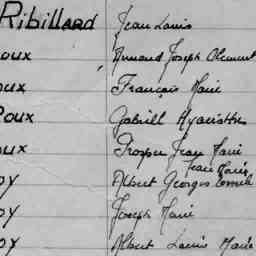 Ribillard Jean Louis
oux Armand Joseph Clément
oux François Marie
Roux Gabriell Hyacinthe
oux Prosper Jean Marie
Jean Marie
oy Albert Georges
oy Joseph Marie
oy Albert Louis Marie